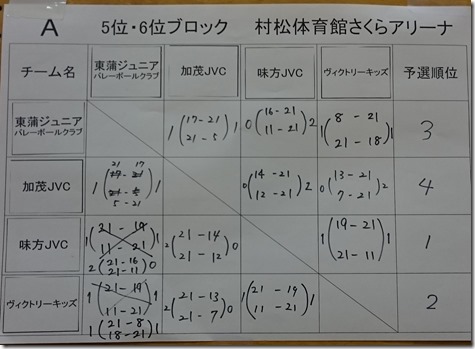 A 5位・6位ブロック 村松体育館さくらアリーナ
チーム名 東蒲ジュニアバレーボールクラブ 加茂JVC 味方JVC ヴィクトリーキッズ 予選順位
東蒲ジュニアバレーボールクラブ 1(17-21 21-5)1 0(16-21 11-21)2 1(8-21 21-18)1 3
加茂JVC 1(21-17 5-21)1 0(14-21 12-21)2 0(13-21 7-21)2 4
味方JVC 1(21-19 11-21)1 2(21-16 21-11)0 2(21-14 21-12)0 1(19-21 21-11)1 1
ヴィクトリーキッズ 1(21-19 11-21)1 1(21-8 18-21)1 2(21-13 21-7)0 1(21-19 11-21)1 2